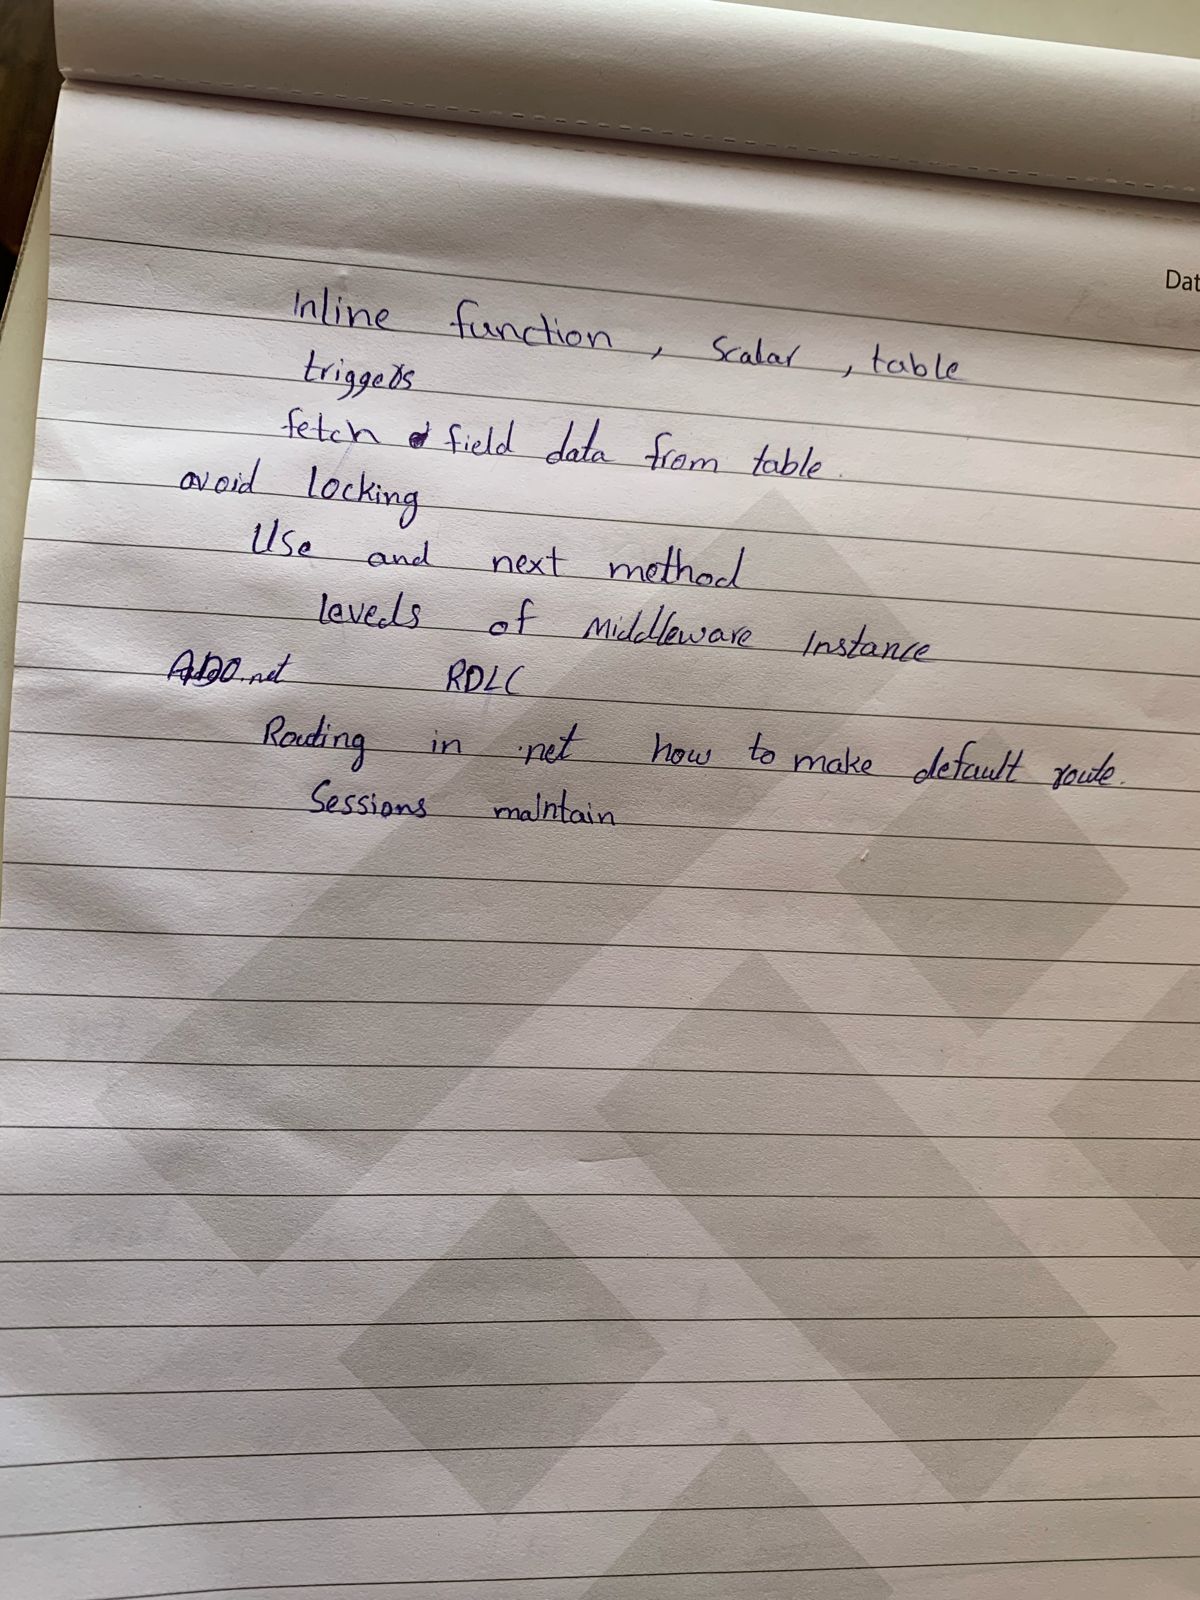 Dat
Inline function, scalar, table
triggers
fetch field data from table.
avoid locking
Use and next method
levels of Middleware Instance
ADO.net RDLC
Routing in .net how to make default route.
Sessions maintain